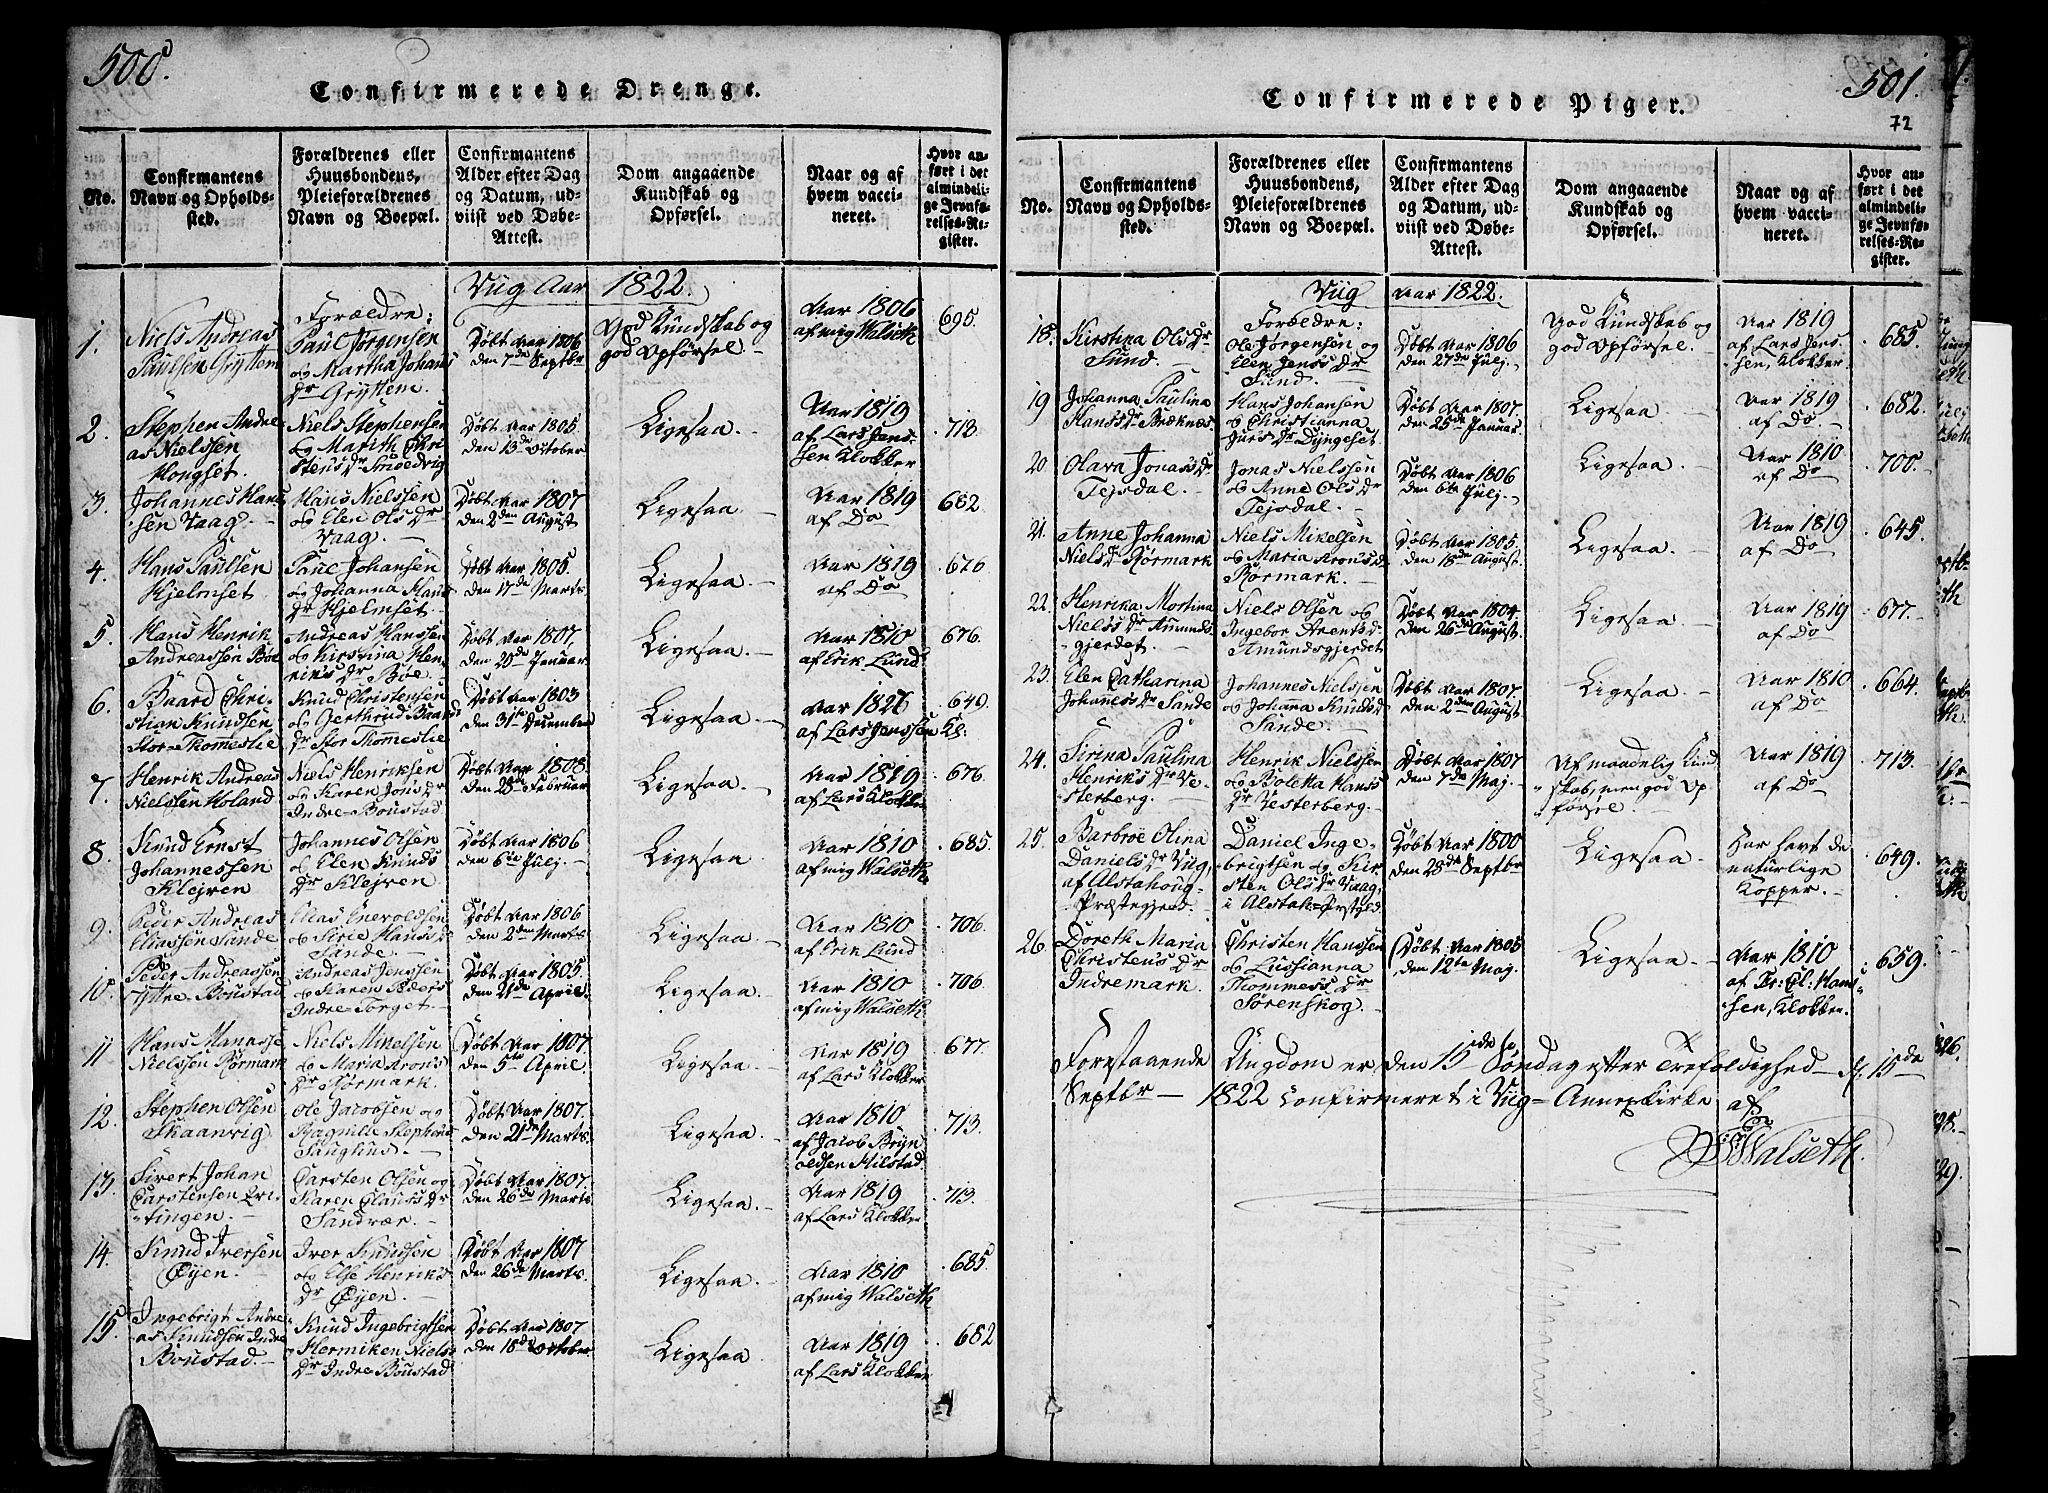 500.
Confirmerede Drenge.
No.
Confirmantens
Navn og Opholds-
sted.
Forældrenes eller
Huusbondens,
Pleieforældrenes
Navn og Boepæl.
Confirmantens
Alder efter Dag
og Datum, ud-
viist ved Døbe-
Attest.
Dom angaaende
Kundskab og
Opførsel.
Naar og af
hvem vacci-
neret.
Hvor an-
ført i det
almindeli-
ge Jevnfø-
relses-Re-
gister.
Viig Aar 1822.
1.
Niels Andreas
Paulsen Gryttem
Forældre:
Paul Jørgensen
og Martha Johans
Dr Gryttem.
Døbt Aar 1806
den 7de Septbr
God Kundskab og
god Opførsel.
Aar 1806
af mig Walseth
695.
2.
Stephen Andre-
as Nielssen
Hongset.
Niels Stephensen
og Marith Chri-
stens Dr Smoedvig
Døbt Aar 1805.
den 13de October
Ligesaa.
Aar 1819
af Lars Jens-
sen Klokker
713.
3.
Johannes Hans-
sen Vaag.
Hans Nielssen
og Elen Ols Dr
Vaag.
Døbt Aar 1807
den 2den August
Ligesaa.
Aar 1819
af Do
682
4.
Hans Paulsen
Hjelmset
Paul Johansen
og Johanna Hans
Dr Hjelmset.
Døbt Aar 1805.
den 17de Marts.
Ligesaa.
Aar 1819
af Do
676
5.
Hans Henrik
Andreassen Bøe
Andreas Hanssen
og Kirstina Hen-
riks Dr Bøe.
Døbt Aar 1807.
den 20de Januar.
Ligesaa.
Aar 1810
af Erik Lund
676.
6.
Baard Chri-
stian Knudsen
Stor-Thomeslie
Knud Christensen
og Gerthrud Baards
Dr Stor Thomeslie
Døbt Aar 1803
den 31te December
Ligesaa
af Lars Jenssen Kl:
640.
7.
Henrik Andreas
Nielssen Holand
Niels Henriksen
og Karen Jons Dr
Indre-Boustad
Døbt Aar 1808.
den 28de Februar
Ligesaa
Aar 1819
af Lars Klokker
676.
8.
Knud Ernst
Johannessen
Klejven
Johannes Olsen
og Elen Knuds
Dr Klejven.
Døbt Aar 1806
den 6te Julj.
Ligesaa
Aar 1810
af mig Walseth.
685.
9.
Peder Andreas
Eliassen Sande
Elias Enevoldsen
og Sirie Hans D.
Sande.
Døbt Aar 1806
den 2den Marts.
Ligesaa.
Aar 1810
af Erik Lund
706.
10.
Peder Andreassen
Ytre Boustad
Andreas Jenssen
og Karen Peders
Indre-Torget
Døbt Aar 1805.
den 21de April.
Ligesaa.
Aar 1810
af mig Walseth
706.
11
Hans Manasse
Nielssen Rørmark
Niels Mikelsen
og Maria Arons
Dr Rørmark.
Døbt Aar 1807.
den 5te April.
Ligesaa.
Aar 1819
af Lars Klokker
677.
12.
Stephen Olsen
Skaanvig
Ole Jacobsen og
Ragnile Stephens
Saughus.
Døbt Aar 1807.
den 21de Marts.
Ligesaa.
Aar 1810
af Jacob Bryn-
oldsen Hilstad.
713.
13.
Sivert Johan
Carstensen Evi-
tingen.
Carsten Olsen og
Karen Claus Dr
Sandvær.
Døbt Aar 1807.
den 26de Marts
Ligesaa.
Aar 1819
af Lars Klokker
713.
14.
Knud Iversen
Øyen.
Iver Knudsen
og Else Henriks
Dr Øyen.
Døbt Aar 1807
den 26de Marts.
Ligesaa.
Aar 1810
af mig Walseth
685.
15.
Ingebrigt Andre-
as Knudsen Indre
Boustad.
Knud Ingebrigtsen
og Hermiken Niels
Dr Indre Boustad
Døbt Aar 1807
den 18de October
Ligesaa
Aar 1819
af Lars Klokker
682
501.
72
Confirmerede Piger.
No.
Confirmantens
Navn og Opholds-
sted.
Forældrenes eller
Huusbondens,
Pleieforældrenes
Navn og Boepæl.
Confirmantens
Alder efter Dag
og Datum, ud-
viist ved Døbe-
Attest.
Dom angaaende
Kundskab og
Opførsel.
Naar og af
hvem vacci-
neret.
Hvor an-
ført i det
almindeli-
ge Jevnfø-
relses-Re-
gister.
Viig Aar 1822.
18.
Kirstina Ols Dr
Sund.
Forældre:
Ole Jørgensen og
Elen Jens Dr
Sund.
Døbt Aar 1806
den 27de Julj.
God Kundskab og
god Opførsel.
Aar 1819
af Lars Jens-
sen, Klokker
685.
19
Johanna Paulina
Hans Dr Bræknæs
Hans Johansen
og Christianna
Jurs Dr Dyngeset
Døbt Aar 1807.
den 25de Januar
Ligesaa.
Aar 1819
af Do.
682.
20
Olava Jonas Dr
Tejsdal.
Jonas Nielssen
og Anne Ols Dr
Tejsdal.
Døbt Aar 1806
den 6te Julj.
Ligesaa.
Aar 1810
af Do
700.
21.
Anne Johanna
Niels Dr Rørmark
Niels Mikelsen
og Maria Arons D.
Rørmark.
Døbt Aar 1805.
den 18de August.
Ligesaa.
Aar 1819
af Do
645.
22.
Henrika Martina
Niels Dr Amunds-
gjerdet.
Niels Olsen og
Ingebor Arents D.
Amundsgjerdet
Døbt Aar 1804.
den 26de August.
Ligesaa.
Aar 1819
af Do
677.
23.
Elen Catharina
Johannes Dr Sande
Johannes Nielssen
og Johanna Knuds D.
Sande.
Døbt Aar 1807.
den 2den August
Ligesaa.
Aar 1810
af Do
664.
24.
Sirina Paulina
Henriks Dr Ve-
sterberg.
Henrik Nielssen
og Boletta Hans
Dr Vesterberg.
Døbt Aar 1807
den 7de Maj.
Umaadelig Kund-
skab, men god Op-
førsel.
Aar 1819
af Do
713.
25.
Barbroe Olina
Daniels Dr Viig,
af Alstahoug-
Præstegjeld.
Daniel Inge-
brigtsen og Kir-
sten Ols Dr Vaag,
Døbt Aar 1800
den 28de Septbr
Ligesaa.
Har havt de
naturlige
Kopper.
649.
26.
Doreth Maria
Christens Dr
Indremark.
Christen Hanssen
og Lussianna
Thommess Dr
Sørenskog.
den 12te Maj.
Ligesaa.
Aar 1810
Hans-
sen, Klokker.
659.
Forestaaende Ungdom er den 15de Søndag efter Trefoldighed d. 15de
Septbr 1822 confirmeret i Viig-Annexkirke af
Walseth.